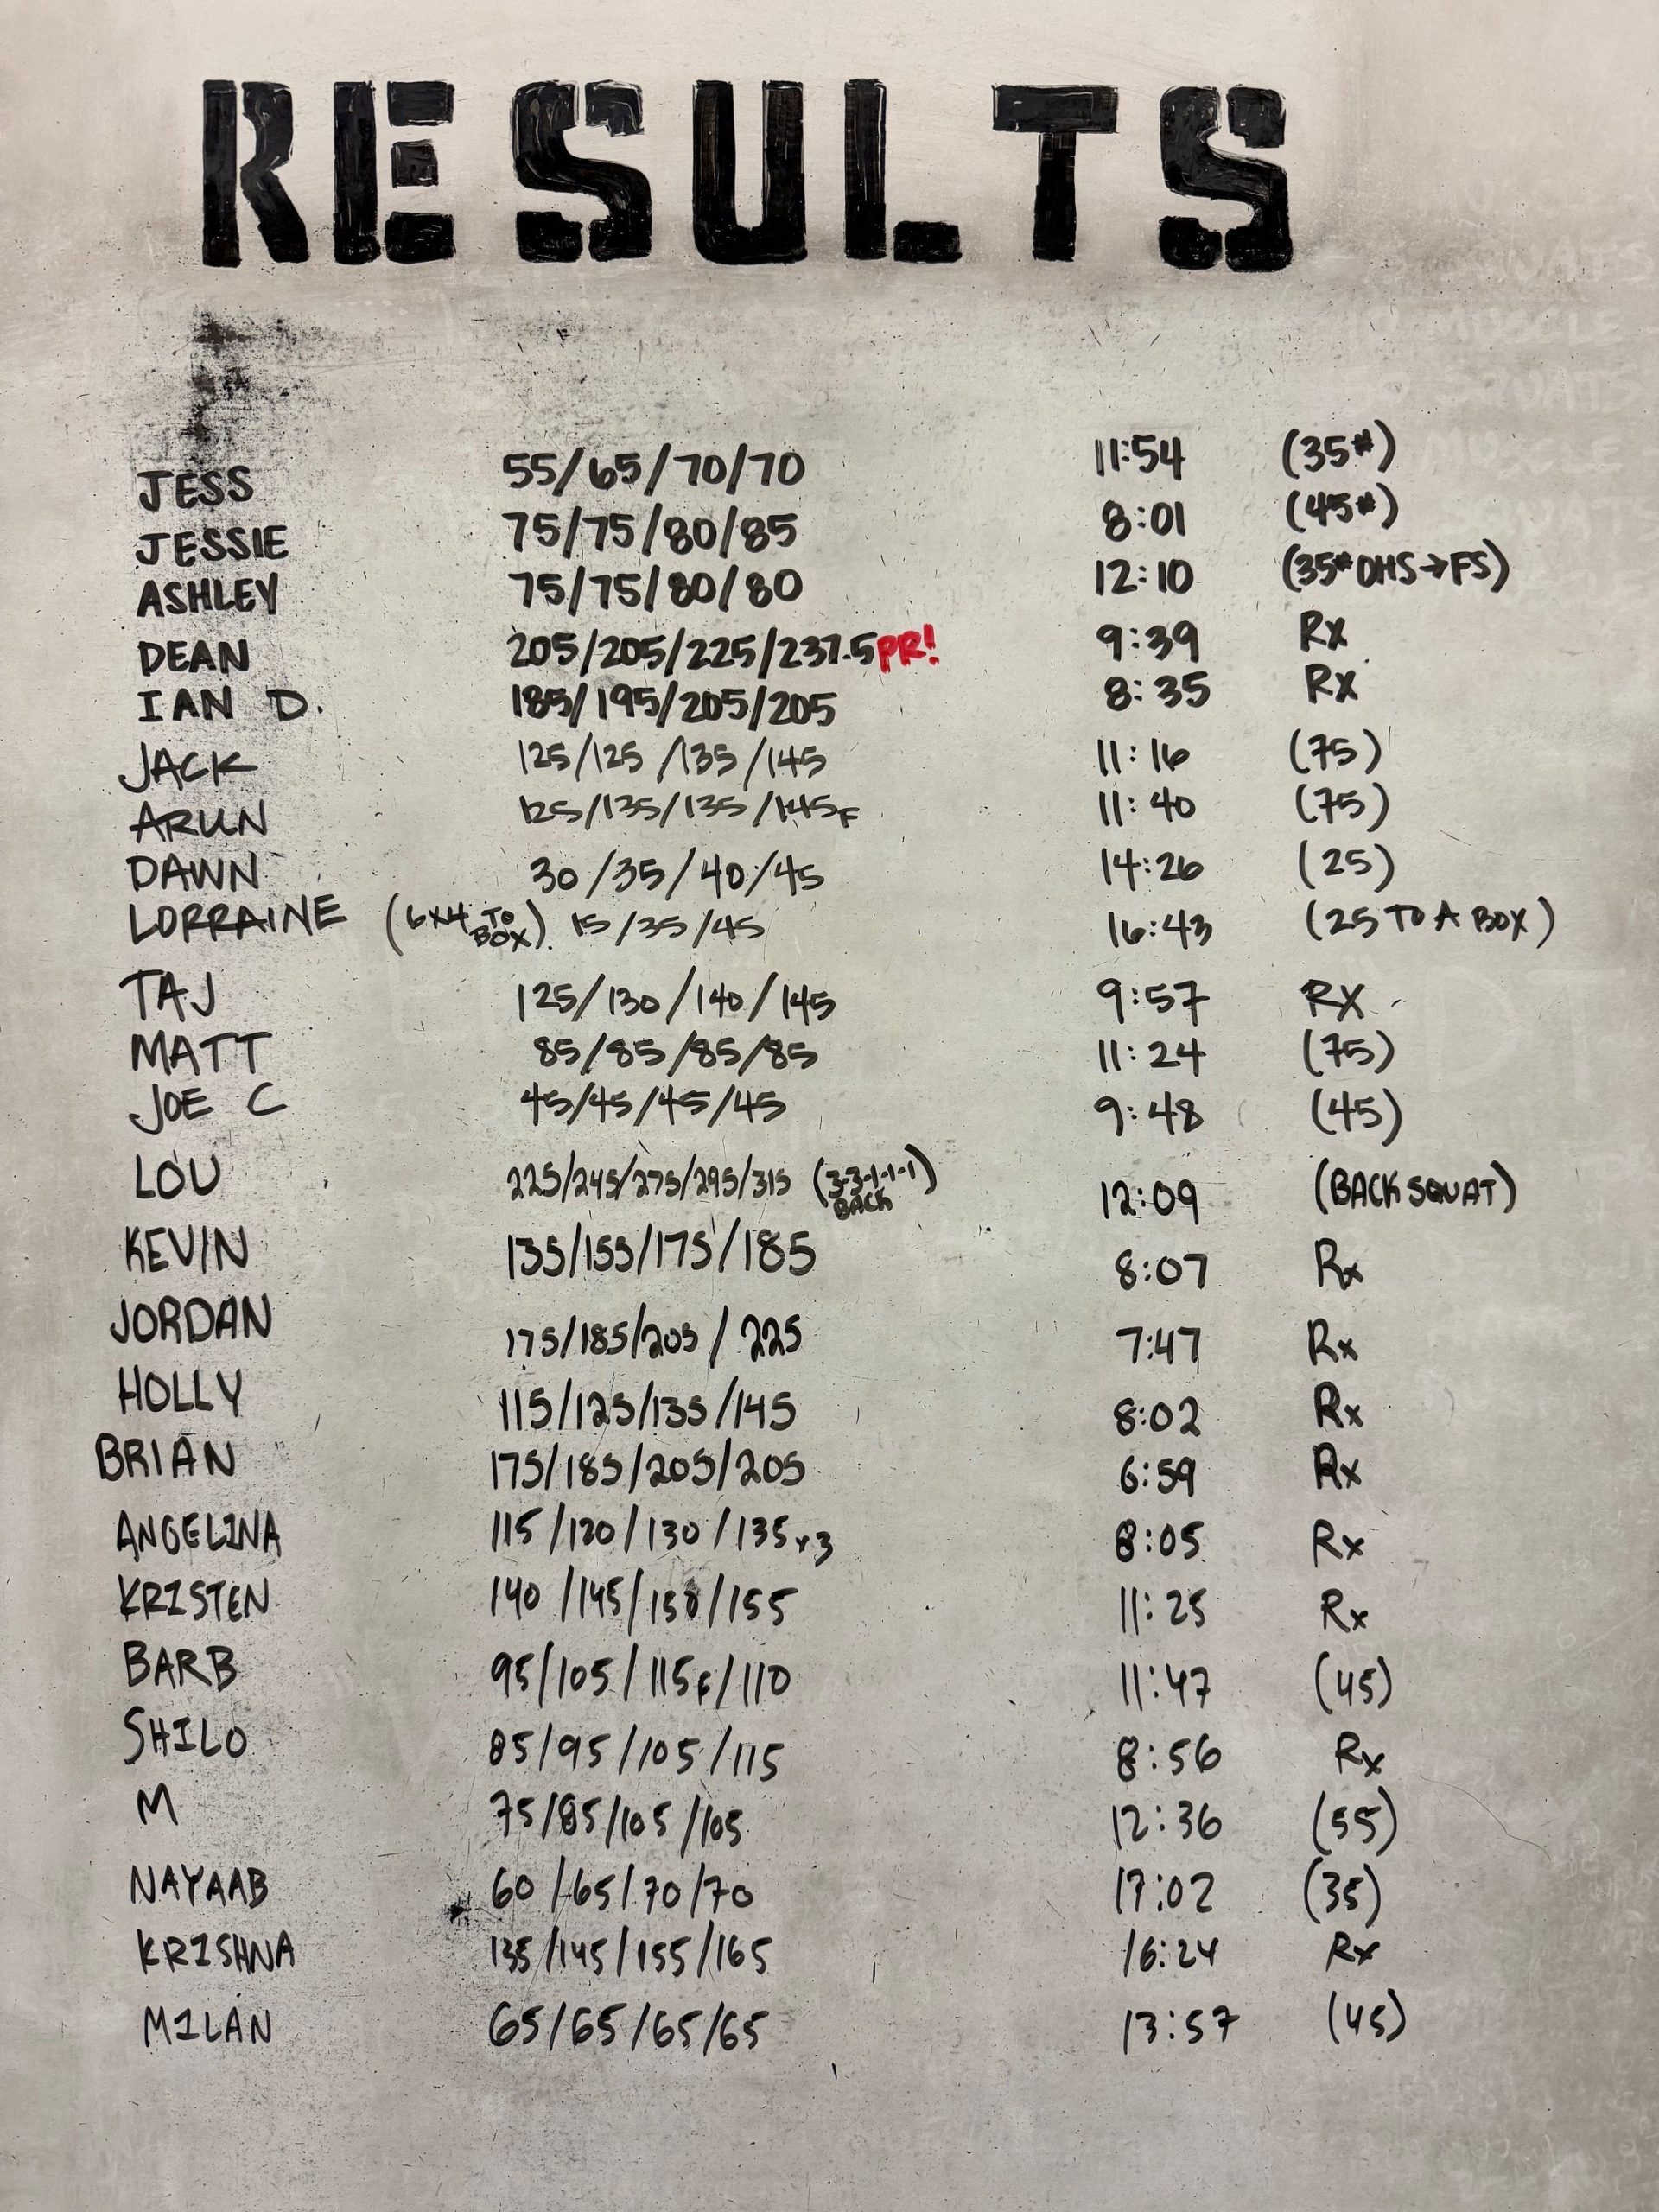 RESULTS
JESS 55/65/70/70 11:54 (35#)
JESSIE 75/75/80/85 8:01 (45#)
ASHLEY 75/75/80/80 12:10 (35# OHS→FS)
DEAN 205/205/225/237.5 PR! 9:39 Rx
IAN D. 185/195/205/205 8:35 Rx
JACK 125/125/135/145 11:16 (75)
ARUN 125/135/135/145F 11:40 (75)
DAWN 30/35/40/45 14:26 (25)
LORRAINE (6x4 TO BOX) 15/35/45 16:43 (25 TO A BOX)
TAJ 125/130/140/145 9:57 RX
MATT 85/85/85/85 11:24 (75)
JOE C 45/45/45/45 9:48 (45)
LOU 225/245/275/295/315 (3-3-1-1-1 BACK) 12:09 (BACK SQUAT)
KEVIN 135/155/175/185 8:07 Rx
JORDAN 175/185/205/225 7:47 Rx
HOLLY 115/125/135/145 8:02 Rx
BRIAN 175/185/205/205 6:59 Rx
ANGELINA 115/120/130/135x3 8:05 Rx
KRISTEN 140/145/150/155 11:25 Rx
BARB 95/105/115F/110 11:47 (45)
SHILO 85/95/105/115 8:56 Rx
M 75/85/105/105 12:36 (55)
NAYAAB 60/65/70/70 17:02 (35)
KRISHNA 135/145/155/165 16:24 Rx
MILAN 65/65/65/65 13:57 (45)